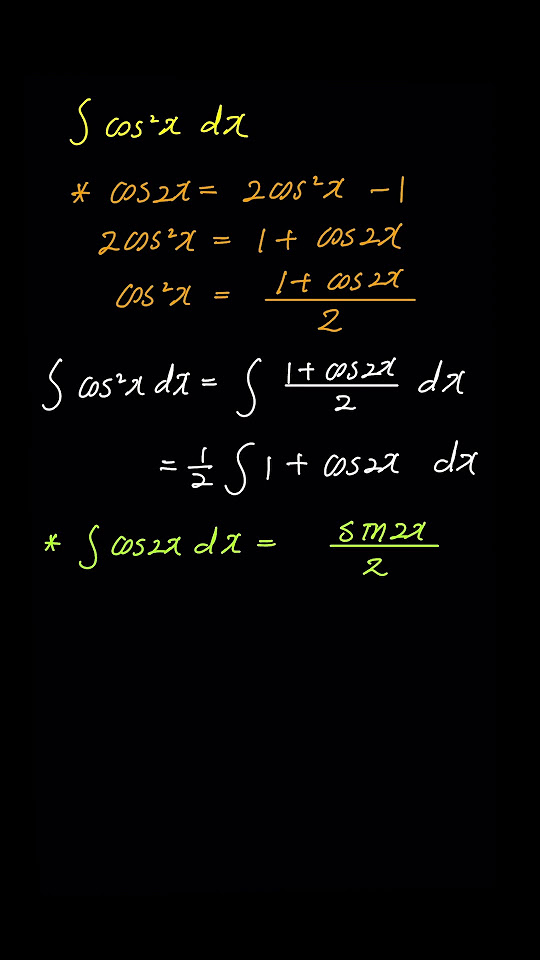 ∫ cos²x dx
* cos2x = 2cos²x - 1
2cos²x = 1 + cos2x
cos²x = (1 + cos2x)/2
∫ cos²x dx = ∫ (1 + cos2x)/2 dx
= 1/2 ∫ 1 + cos2x dx
* ∫ cos2x dx = sin2x/2